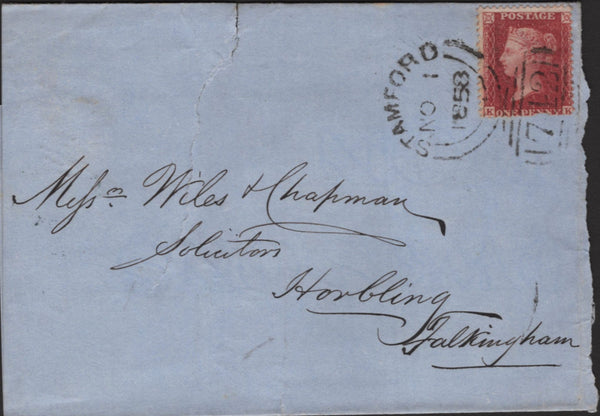 POSTAGE
K K
ONE PENNY
STAMFORD
NO 1
1858
Messrs Wiles & Chapman
Solicitors
Horbling
Falkingham